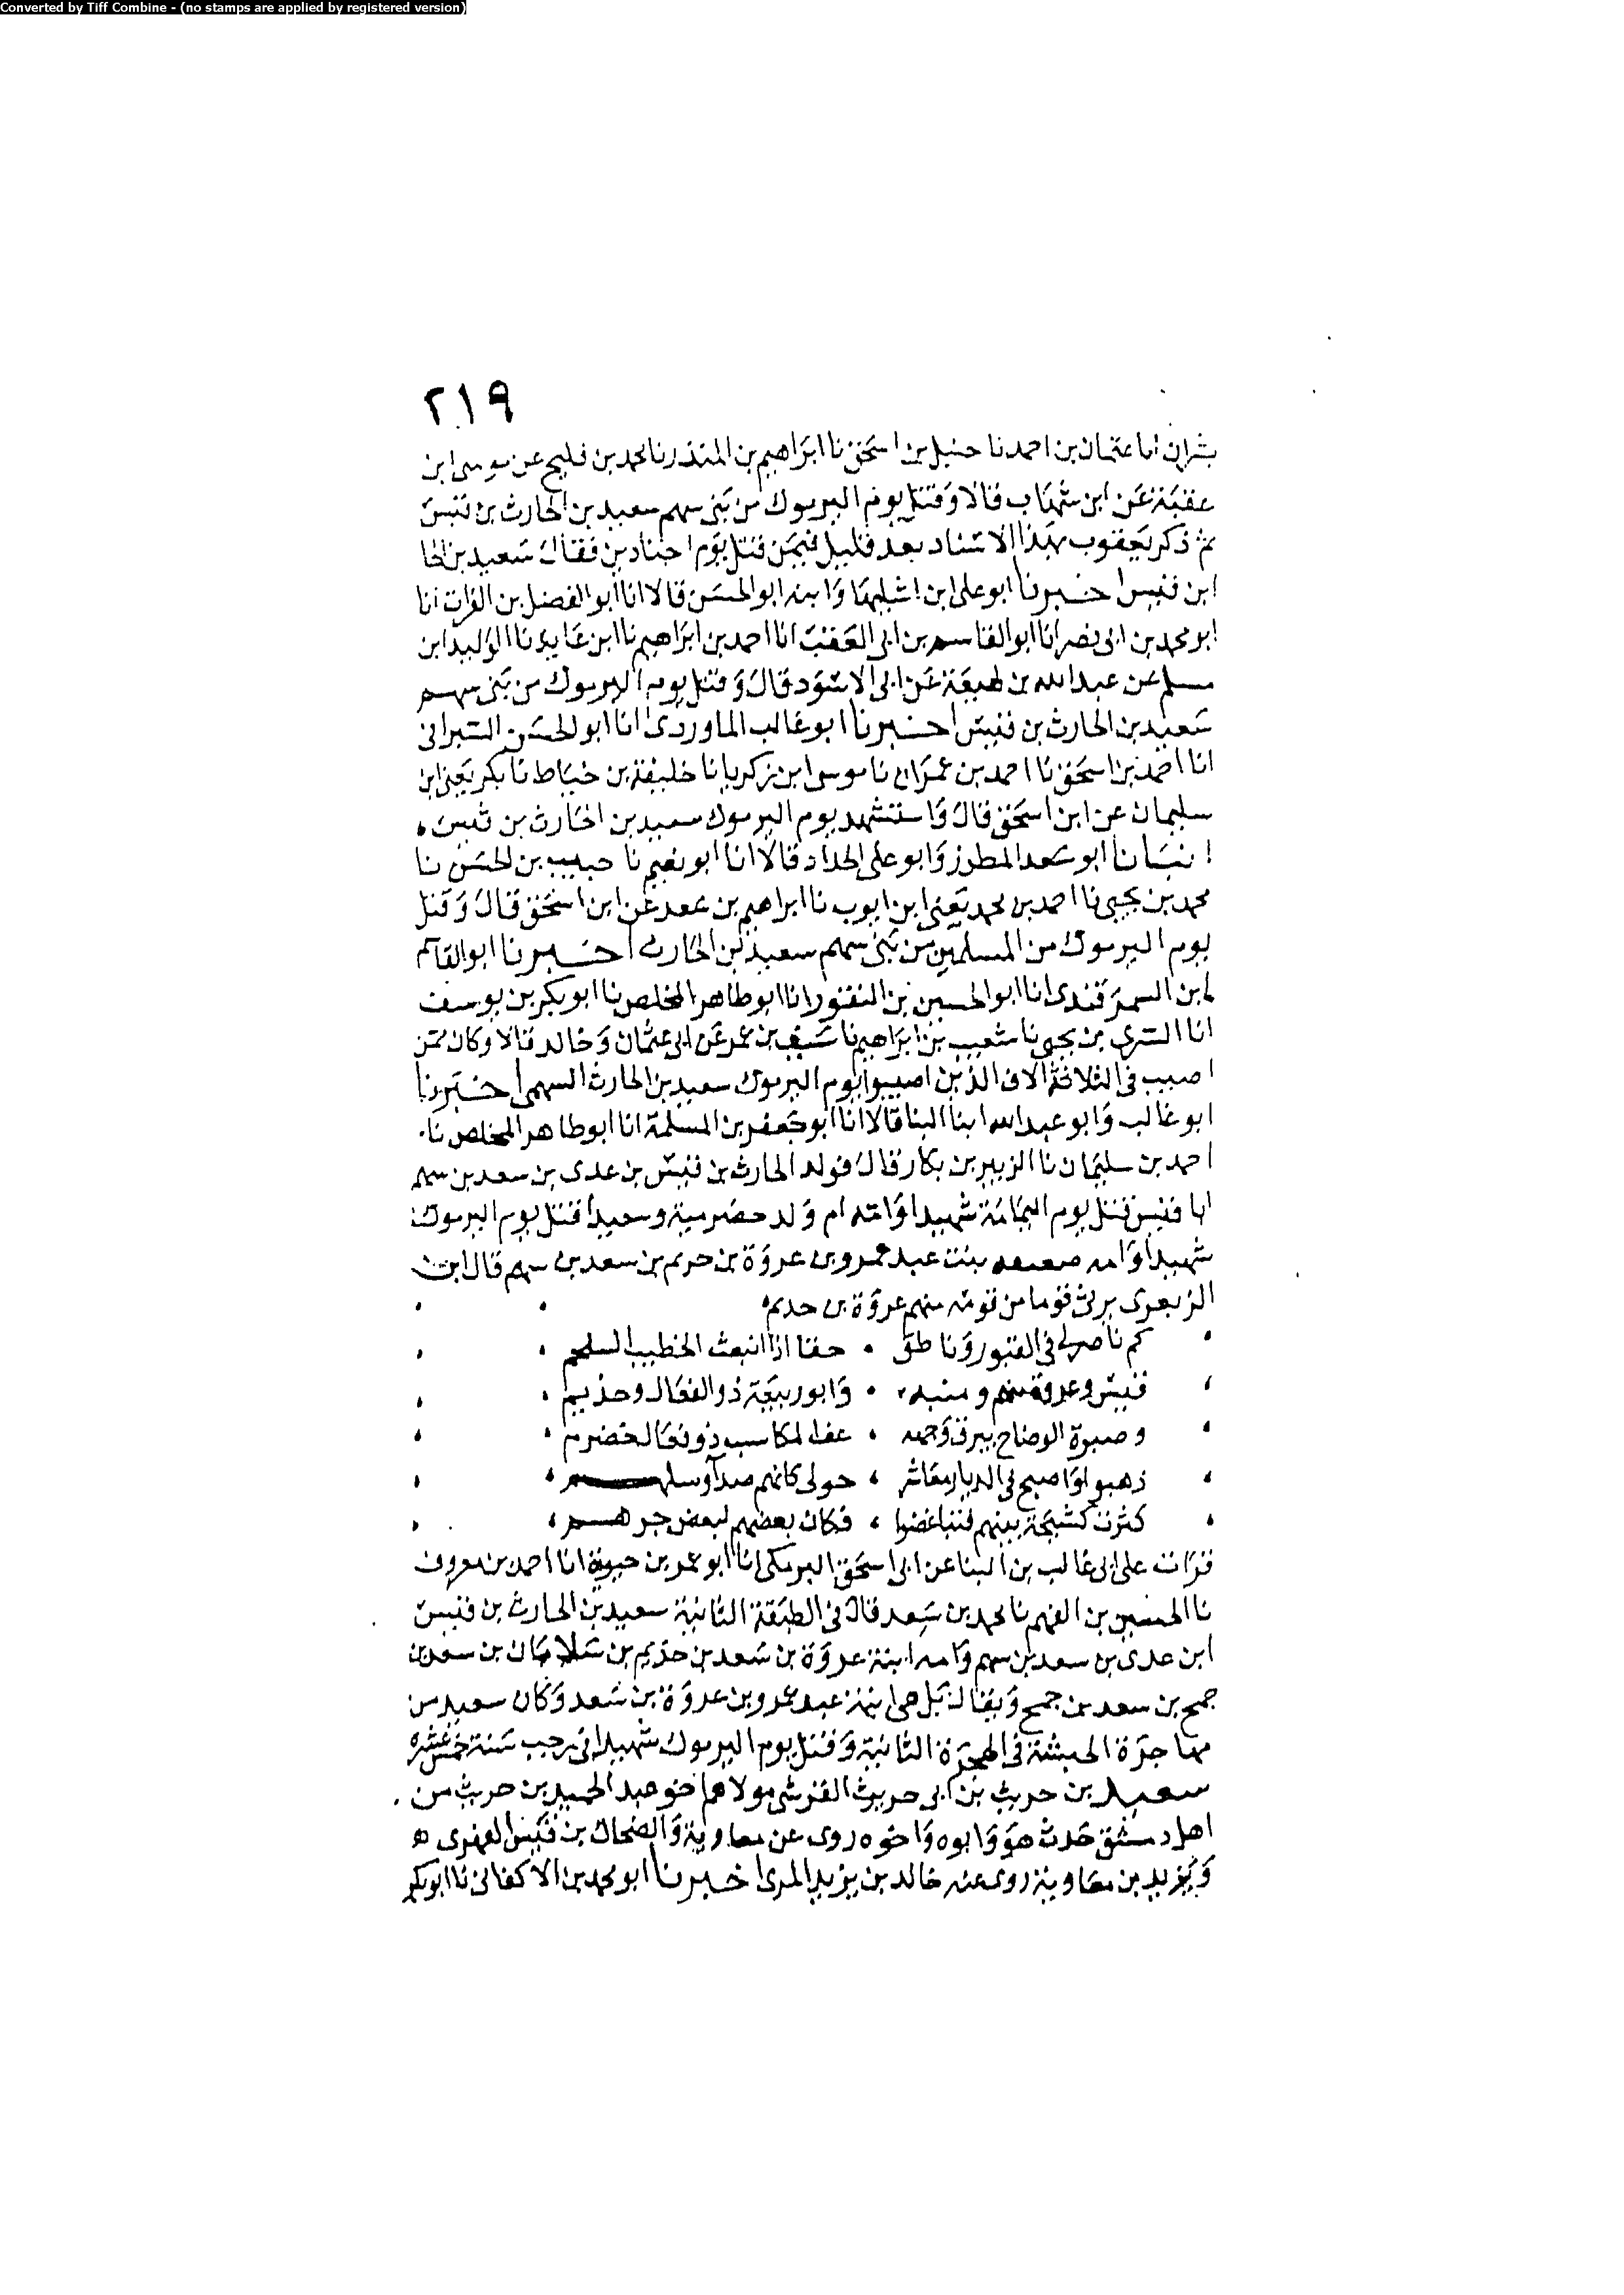 Converted by Tiff Combine - (no stamps are applied by registered version)
٢١٩
بشران انا عثمان بن احمد نا حنبل بن اسحق نا ابراهيم بن المنذر نا محمد بن فليح عن موسى ابن
عقبة عن ابن شهاب قالا وقتل يوم اليرموك من بني سهم سعيد بن الحارث بن قيس
ثم ذكر يعقوب بهذا الاسناد بعد قليل فيمن قتل يوم اجنادين فقال سعيد بن الحا
ابن قيس اخبرنا ابو علي ابن اشليها وابنه ابو الحسن قالا انا ابو الفضل بن الفرات انا
ابو محمد بن ابي نصر انا ابو القاسم بن ابي العقب انا احمد بن ابراهيم نا ابن عايد نا الوليد ابن
مسلم عن عبد الله بن لهيعة عن ابي الاسود قال وقتل يوم اليرموك من بني سهم
سعيد بن الحارث بن قيس اخبرنا ابو غالب الماوردي انا ابو الحسن السيرافي
انا احمد بن اسحق نا احمد بن عمران نا موسى ابن زكريا نا خليفة بن خياط نا بكر يعني ابن
سليمان عن ابن اسحق قال واستشهد يوم اليرموك سعيد بن الحارث بن قيس
انبانا ابو سعد المطرز وابو علي الحداد قالا انا ابو نعيم نا حبيب بن الحسن نا
محمد بن يحيى نا احمد بن محمد يعني ابن ايوب نا ابراهيم بن سعد عن ابن اسحق قال وقتل
يوم اليرموك من المسلمين من بني سهم سعيد بن الحارث اخبرنا ابو القاسم
ابن السمرقندي انا ابو الحسين بن النقور انا ابو طاهر المخلص نا ابو بكر بن يوسف
انا السري بن يحيى نا شعيب بن ابراهيم نا سيف بن عمر عن ابي عثمان وخالد قالا وكان ممن
اصيب في الثلاثة الاف الذين اصيبوا يوم اليرموك سعيد بن الحارث السهمي اخبرنا
ابو غالب وابو عبد الله ابنا البنا قالا انا ابو جعفر بن المسلمة انا ابو طاهر المخلص نا
احمد بن سليمان نا الزبير بن بكار قال فولد الحارث بن قيس بن عدي بن سعد بن سهم
ابا قيس قتل يوم اليمامة شهيدا وامه ام ولد حضرمية وسعيدا قتل يوم اليرموك
شهيدا وامه بنت عبد عمرو بن عروة بن حريم بن سعد بن سهم قال ابن
الزبعرى يرثي قوما من قومه منهم عروة بن حديم
كم ناصر لي في القبور وناطق حقا اذا انبعث الخطيب السلجم
قيس وعروة منهم ومنبه وابو ربيعة ذو الفعال وحذيم
وصبرة الوضاح يبرق وجهه عف المكاسب ذو فعال خضرم
ذهبوا واصبح في الديار معاشر حولي كانهم صدآ وسلهم
كثرت كشيحة بينهم فتباغضوا فكان بعضهم لبعض جرهم
قرات على ابي غالب بن البنا عن ابي اسحق البرمكي انا ابو عمر بن حيوية انا احمد بن معروف
نا الحسين بن الفهم نا محمد بن سعد قال في الطبقة الثانية سعيد بن الحارث بن قيس
ابن عدي بن سعد بن سهم وامه ابنة عروة بن سعد بن حذيم بن سلامان بن سعد بن
جمح بن سعد بن جمح ويقال بل هي ابنة عبد عمرو بن عروة بن سعد وكان سعيد من
مهاجرة الحبشة في الهجرة الثانية وقتل يوم اليرموك شهيدا في رجب سنة خمس عشره
سعيد بن حريث بن ابي حريث القرشي مولاهم اخو عبد الحميد بن حريث من
اهل دمشق حدث هو وابوه واخوه روى عن معاوية والضحاك بن قيس الفهري
ويزيد بن معاوية روى عنه خالد بن يزيد المري اخبرنا ابو محمد بن الاكفاني نا ابو بكر